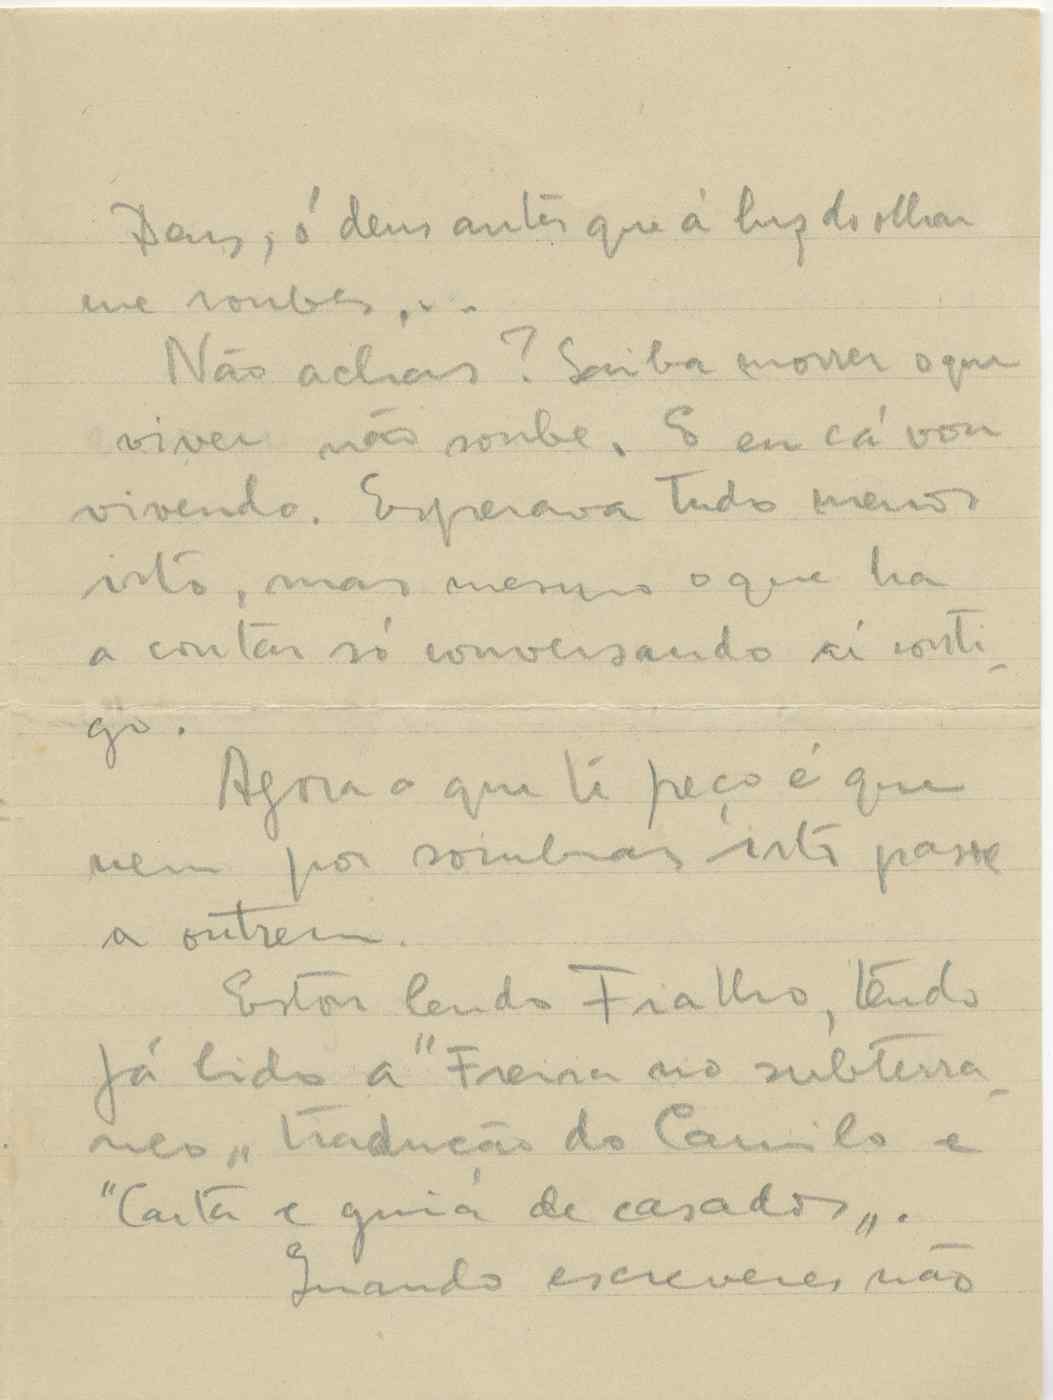 Deus, ó deus antes que á luz do olhar
me roubes,...
Não achas? Saiba morrer o que
viver não soube. E eu cá vou
vivendo. Esperava tudo menos
isto, mas mesmo o que ha
a contar só conversando aí conti-
go.
Agora o que te peço é que
nem por sombras isto passe
a outrem.
Estou lendo Fialho, tendo
já lido a "Freira no subterra-
neo" tradução do Camilo e
"Carta e guia de casados".
Quando escreveres não